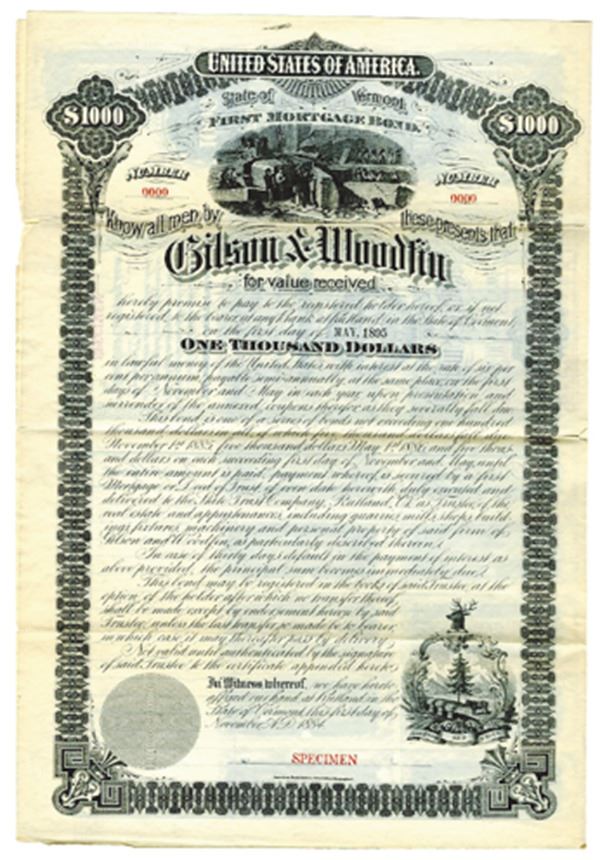 UNITED STATES OF AMERICA.
State of Vermont
$1000 $1000
FIRST MORTGAGE BOND.
NUMBER NUMBER
0000 0000
Know all men by these presents that
Gilson & Woodfin
for value received
hereby promise to pay to the registered holder hereof, or if not
registered, to the bearer, at any Bank at Rutland, in the State of Vermont,
on the first day of MAY, 1895
ONE THOUSAND DOLLARS
in lawful money of the United States, with interest at the rate of six per
cent per annum, payable semi-annually, at the same place, on the first
days of November and May in each year, upon presentation and
surrender of the annexed coupons therefor, as they severally fall due.
This bond is one of a series of bonds not exceeding one hundred
thousand dollars in all, of which five thousand dollars fall due
November 1st 1885, five thousand dollars May 1st 1886, and five thous-
and dollars on each succeeding first day of November and May, until
the entire amount is paid, payment whereof is secured by a first
Mortgage or Deed of Trust of even date herewith duly executed and
delivered to the State Trust Company, Rutland, Vt. as Trustee, of the
real estate and appurtenances, including quarries, mills, shops, build-
ings, fixtures, machinery and personal property of said firm of
Gilson and Woodfin, as particularly described therein.
In case of thirty days default in the payment of interest as
above provided, the principal sum becomes immediately due.
This bond may be registered in the books of said Trustee, at the
option of the holder after which no transfer thereof
shall be made except by endorsement hereon by said
Trustee, unless the last transfer so made be to bearer,
in which case it may thereafter pass by delivery.
Not valid until authenticated by the signature
of said Trustee to the certificate appended hereto.
In Witness whereof, we have hereto
affixed our hand at Rutland in the
State of Vermont this first day of
November A.D. 1884.
SPECIMEN